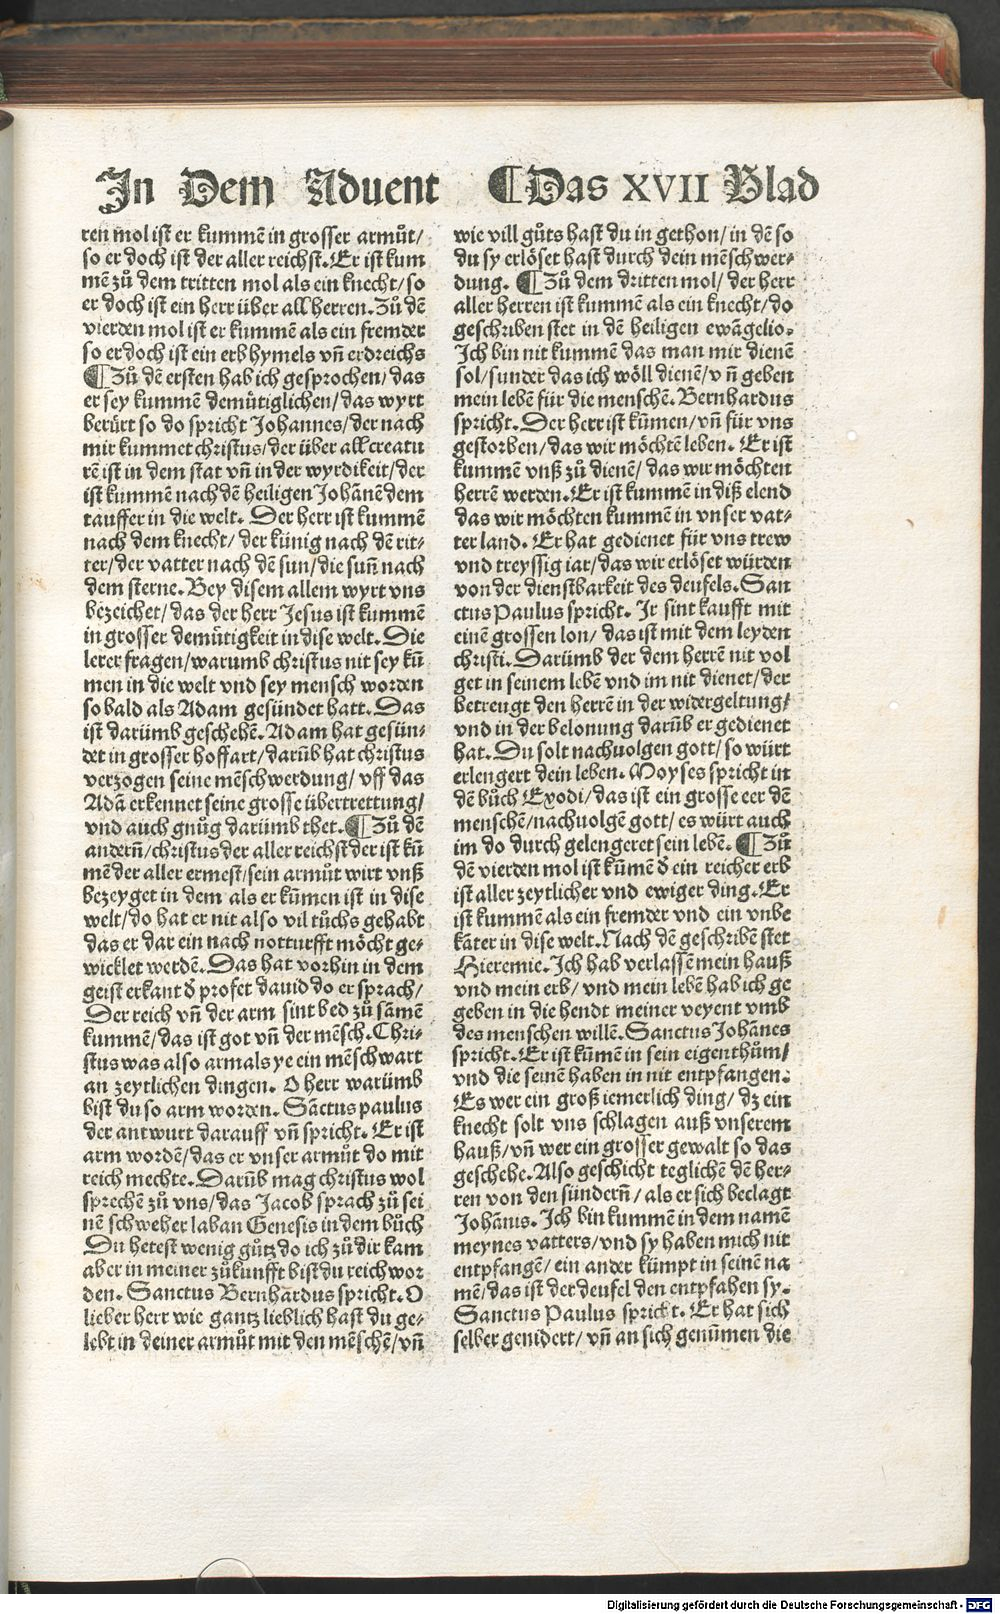 In Dem Aduent ¶Das XVII Blad
ren mol ist er kummē in grosser armůt/
so er doch ist der aller reichst. Er ist kum
mē zů dem tritten mol als ein knecht/so
er doch ist ein herr über all herren. Zů dē
vierden mol ist er kummē als ein fremder
so er doch ist ein erb hymels vn̄ erdreichs
¶Zů dē ersten hab ich gesprochen/das
er sey kummē demütiglichen/das wyrt
berürt so do spricht Johannes/der nach
mir kummet christus/der über all creatu
rē ist in dem stat vn̄ in der wyrdikeit/der
ist kummē nach dē heiligen Johānē dem
tauffer in die welt. Der herr ist kummē
nach dem knecht/der künig nach dē rit⸗
ter/der vatter nach dē sun/die sun̄ nach
dem sterne. Bey disem allem wyrt vns
bezeichet/das der herr Jesus ist kummē
in grosser demütigkeit in dise welt. Die
lerer fragen/warumb christus nit sey kū
men in die welt vnd sey mensch worden
so bald als Adam gesündet hatt. Das
ist darümb geschehē. Adam hat gesün⸗
det in grosser hoffart/darūb hat christus
verzogen seine mēschwerdung/vff das
Adā erkennet seine grosse übertrettung/
vnd auch gnůg darümb thet. ¶Zů dē
andern̄/christus der aller reichst der ist kū
mē der aller ermest/sein armůt wirt vnß
bezeyget in dem als er kūmen ist in dise
welt/do hat er nit also vil tůchs gehabt
das er dar ein nach notturfft möcht ge⸗
wicklet werdē. Das hat vorhin in dem
geist erkant d̄ profet dauid do er sprach/
Der reich vn̄ der arm sint bed zů sāmē
kummē/das ist got vn̄ der mēsch. Chri⸗
stus was also arm als ye ein mēsch wart
an zeytlichen dingen. O herr warümb
bist du so arm worden. Sāctus paulus
der antwurt darauff vn̄ spricht. Er ist
arm wordē/das er vnser armůt do mit
reich mechte. Darūb mag christus wol
sprechē zů vns/das Jacob sprach zů sei
nē schweher laban Genesis in dem bůch
Du hetest wenig gůtz do ich zů dir kam
aber in meiner zůkunfft bist du reich wor
den. Sanctus Bernhardus spricht. O
lieber herr wie gantz lieblich hast du ge⸗
lebt in deiner armůt mit den mēschē/vn̄
wie vill gůts hast du in gethon/in dē so
du sy erlöset hast durch dein mēschwer⸗
dung. ¶Zů dem dritten mol/der herr
aller herren ist kummē als ein knecht/do
geschriben stet in dē heiligen ewāgelio.
Ich bin nit kummē das man mir dienē
sol/sunder das ich wöll dienē/vn̄ geben
mein lebē für die menschē. Bernhardus
spricht. Der herr ist kūmen/vn̄ für vns
gestorben/das wir möchtē leben. Er ist
kummē vnß zů dienē/das wir möchten
herrē werden. Er ist kummē in diß elend
das wir möchten kummē in vnser vat⸗
terland. Er hat gedienet für vns trew
vnd treyssig iar/das wir erlöset würden
von der dienstbarkeit des deufels. San
ctus Paulus spricht. Ir sint kaufft mit
einē grossen lon/das ist mit dem leyden
christi. Darümb der dem herrē nit vol
get in seinem lebē vnd im nit dienet/der
betreugt den herrē in der widergeltung/
vnd in der belonung darūb er gedienet
hat. Du solt nachuolgen gott/so würt
erlengert dein leben. Moyses spricht in
dē bůch Exodi/das ist ein grosse eer dē
menschē/nachuolgē gott/es würt auch
im do durch gelengeret sein lebē. ¶Zů
dē vierden mol ist kūmē d̄ ein reicher erb
ist aller zeytlicher vnd ewiger ding. Er
ist kummē als ein fremder vnd ein vnbe
kāter in dise welt. Nach dē geschribē stet
Hieremie. Ich hab verlassē mein hauß
vnd mein erb/vnd mein lebē hab ich ge
geben in die hendt meiner veyent vmb
des menschen willē. Sanctus Johānes
spricht. Er ist kūmē in sein eigenthům/
vnd die seinē haben in nit entpfangen.
Es wer ein groß iemerlich ding/dz ein
knecht solt vns schlagen auß vnserem
hauß/vn̄ wer ein grosser gewalt so das
geschehe. Also geschicht teglichē dē her⸗
ren von den sündern̄/als er sich beclagt
Johānis. Ich bin kummē in dem namē
meynes vatters/vnd sy haben mich nit
entpfangē/ein ander kümpt in seinē na
mē/das ist der deufel den entpfahen sy.
Sanctus Paulus spricht. Er hat sich
selber genidert/vn̄ an sich genūmen die
Digitalisierung gefördert durch die Deutsche Forschungsgemeinschaft - DFG